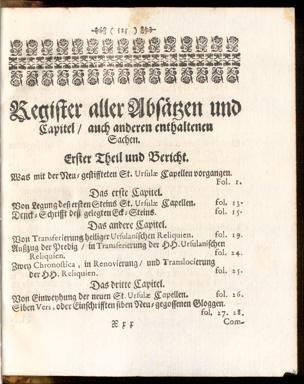 ( 125. )
Register aller Absätzen und
Capitel / auch anderen enthaltenen
Sachen.
Erster Theil und Bericht.
Was mit der Neu-gestiffteten St. Ursulæ Capellen vorgangen.
Fol. 1.
Das erste Capitel.
Von Legung deß ersten Steins St. Ursulæ Capellen. fol. 13.
Druck-Schrifft deß gelegten Eck-Steins. fol. 15.
Das andere Capitel.
Von Transferierung heiliger Ursulanischen Reliquien. fol. 19.
Außzug der Predig / in Transferierung der HH. Ursulanischen
Reliquien. fol. 24.
Zwey Chronostica, in Renovierung / und Translocierung
der HH. Reliquien. fol. 25.
Das dritte Capitel.
Von Einweyhung der neuen St. Ursulæ Capellen. fol. 26.
Siben Vers, oder Einschrifften siben Neu-gegossenen Gloggen.
fol. 27. 28.
Com-